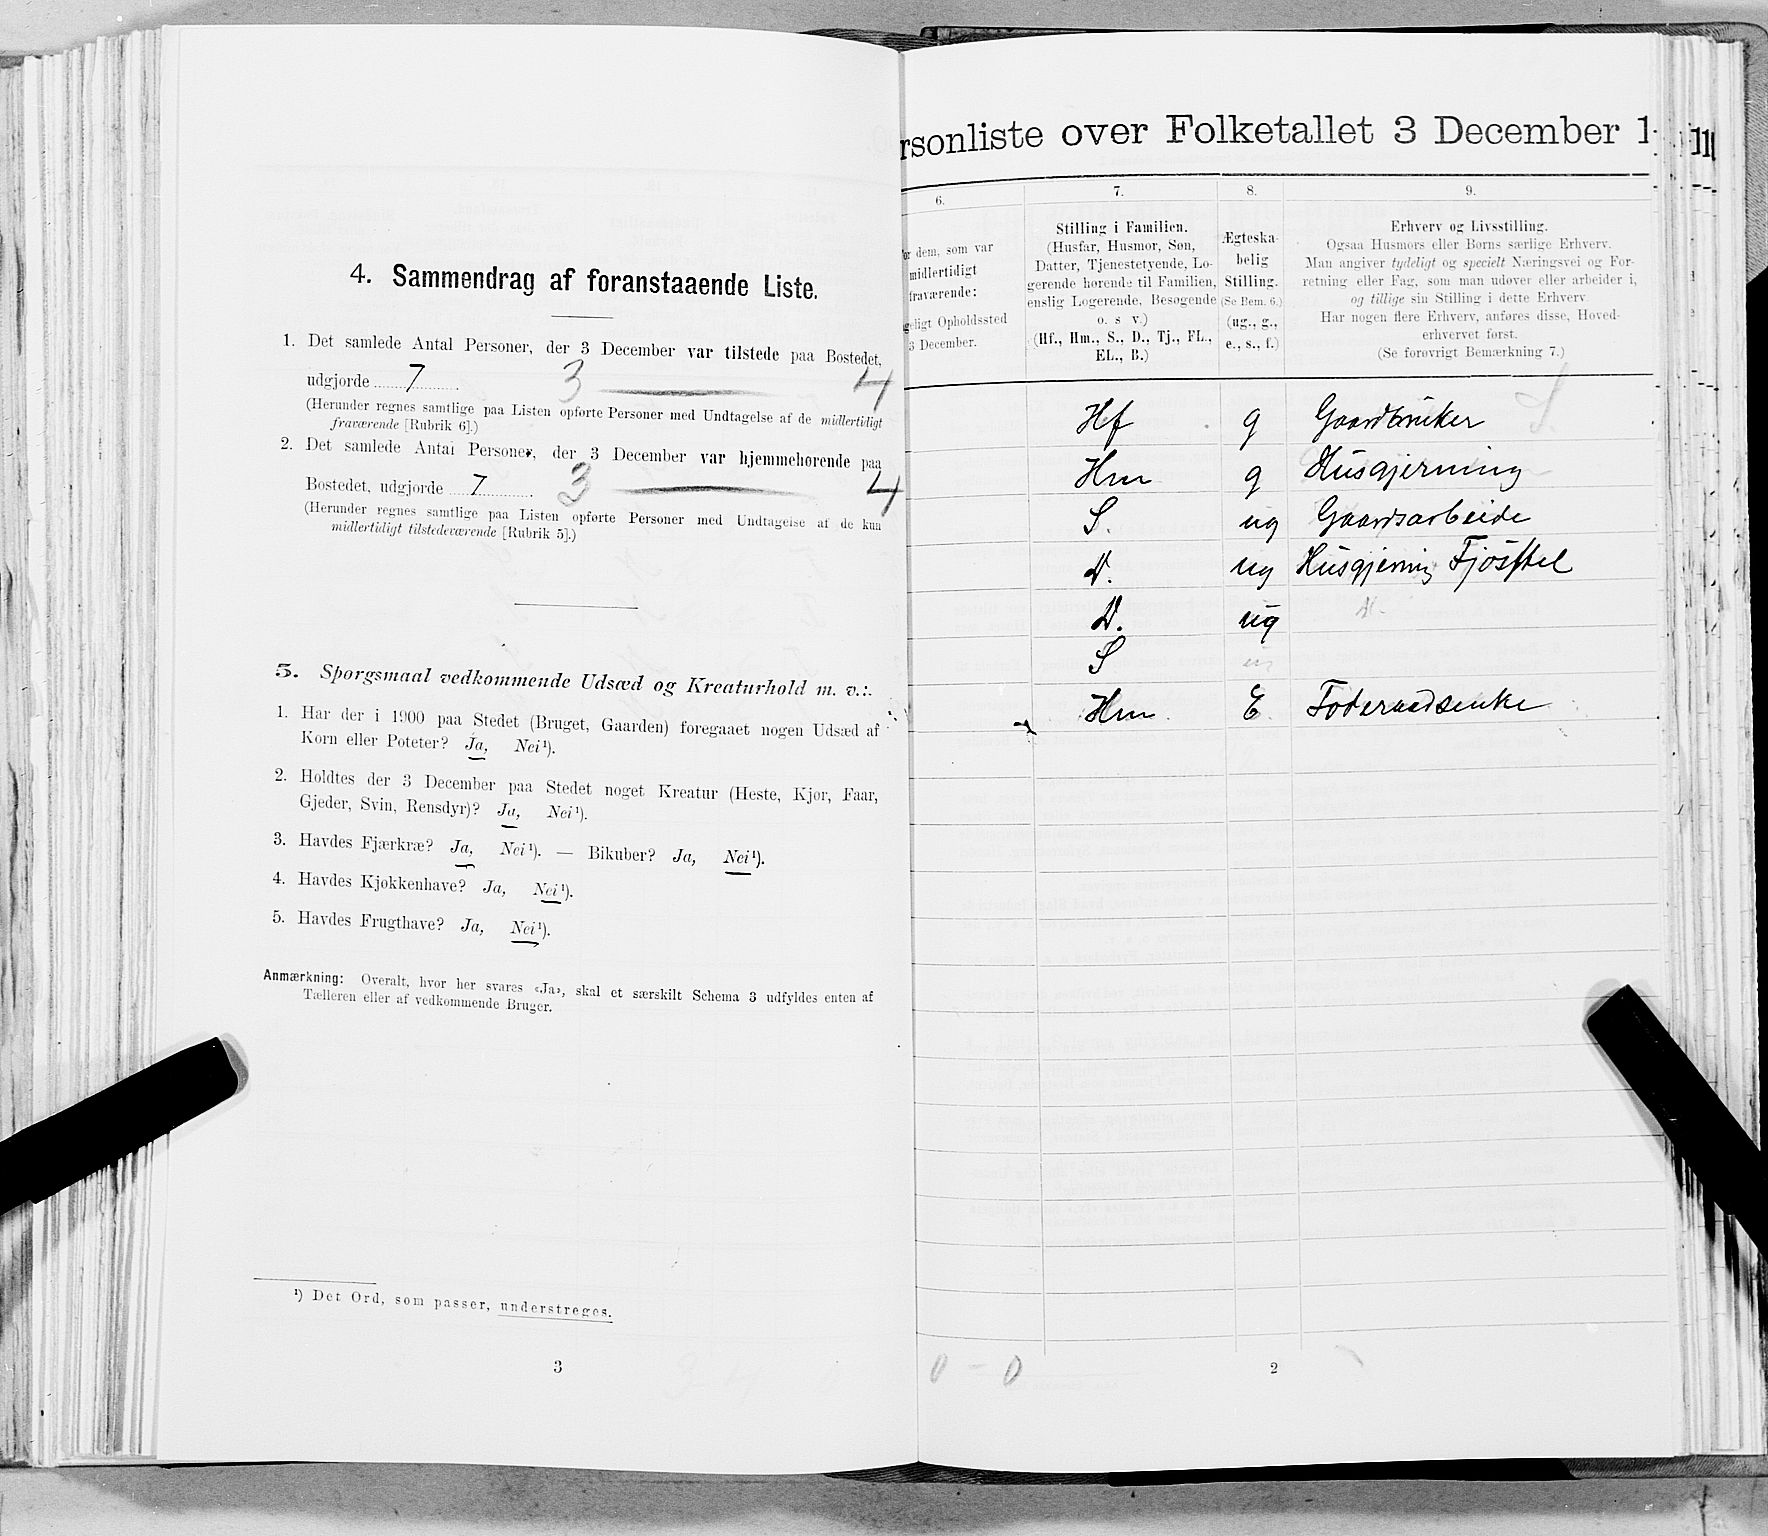 4. Sammendrag af foranstaaende Liste.
1. Det samlede Antal Personer, der 3 December var tilstede paa Bostedet,
udgjorde 7 3 4
(Herunder regnes samtlige paa Listen opførte Personer med Undtagelse af de midlertidigt
fraværende [Rubrik 6].)
2. Det samlede Antal Personer, der 3 December var hjemmehørende paa
Bostedet, udgjorde 7 3 4
(Herunder regnes samtlige paa Listen opførte Personer med Undtagelse af de kun
midlertidigt tilstedeværende [Rubrik 5].)
5. Spørgsmaal vedkommende Udsæd og Kreaturhold m. v.:
1. Har der i 1900 paa Stedet (Bruget, Gaarden) foregaaet nogen Udsæd af
Korn eller Poteter? Ja, Nei¹).
2. Holdtes der 3 December paa Stedet noget Kreatur (Heste, Kjør, Faar,
Gjeder, Svin, Rensdyr)? Ja, Nei¹).
3. Havdes Fjærkræ? Ja, Nei¹). — Bikuber? Ja, Nei¹).
4. Havdes Kjøkkenhave? Ja, Nei¹).
5. Havdes Frugthave? Ja, Nei¹).
Anmærkning: Overalt, hvor her svares «Ja», skal et særskilt Schema 3 udfyldes enten af
Tælleren eller af vedkommende Bruger.
¹) Det Ord, som passer, understreges.
3
rsonliste over Folketallet 3 December 1
6. 7. 8. 9.
or dem, som var
midlertidigt
fraværende:
geligt Opholdssted
3 December.
Stilling i Familien.
(Husfar, Husmor, Søn,
Datter, Tjenestetyende, Lo-
gerende hørende til Familien,
enslig Logerende, Besøgende
o. s. v.)
(Hf., Hm., S., D., Tj., FL.,
EL., B.)
Ægteska-
belig
Stilling.
(Se Bem. 6.)
(ug., g.,
e., s., f.)
Erhverv og Livsstilling.
Ogsaa Husmors eller Børns særlige Erhverv.
Man angiver tydeligt og specielt Næringsvei og For-
retning eller Fag, som man udøver eller arbeider i,
og tillige sin Stilling i dette Erhverv.
Har nogen flere Erhverv, anføres disse, Hoved-
erhvervet først.
(Se forøvrigt Bemærkning 7.)
Hf g Gaardbruker
Hm g Husgjerning
S. ug Gaardsarbeide
D. ug Husgjerning Fjøsstel
D. ug
S
Hm E Foderaadsenke
0 - 0
2